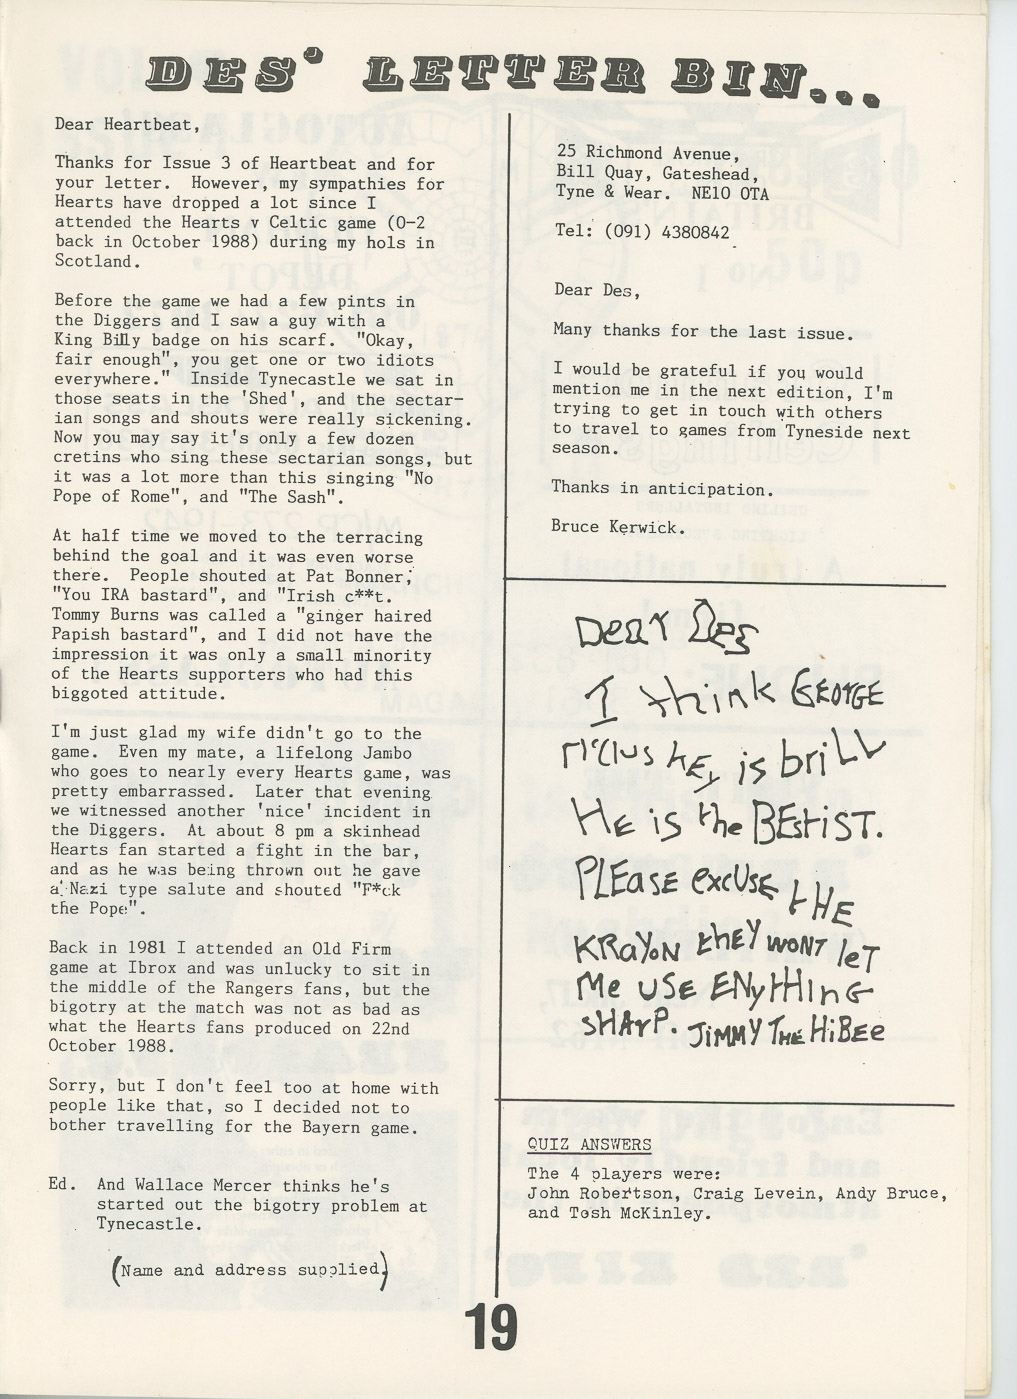 DES' LETTER BIN...
Dear Heartbeat,
Thanks for Issue 3 of Heartbeat and for
your letter.  However, my sympathies for
Hearts have dropped a lot since I
attended the Hearts v Celtic game (0-2
back in October 1988) during my hols in
Scotland.
Before the game we had a few pints in
the Diggers and I saw a guy with a
King Billy badge on his scarf.  "Okay,
fair enough", you get one or two idiots
everywhere."  Inside Tynecastle we sat in
those seats in the 'Shed', and the sectar-
ian songs and shouts were really sickening.
Now you may say it's only a few dozen
cretins who sing these sectarian songs, but
it was a lot more than this singing "No
Pope of Rome", and "The Sash".
At half time we moved to the terracing
behind the goal and it was even worse
there.  People shouted at Pat Bonner,
"You IRA bastard", and "Irish c**t.
Tommy Burns was called a "ginger haired
Papish bastard", and I did not have the
impression it was only a small minority
of the Hearts supporters who had this
biggoted attitude.
I'm just glad my wife didn't go to the
game.  Even my mate, a lifelong Jambo
who goes to nearly every Hearts game, was
pretty embarrassed.  Later that evening
we witnessed another 'nice' incident in
the Diggers.  At about 8 pm a skinhead
Hearts fan started a fight in the bar,
and as he was being thrown out he gave
a Nazi type salute and shouted "F*ck
the Pope".
Back in 1981 I attended an Old Firm
game at Ibrox and was unlucky to sit in
the middle of the Rangers fans, but the
bigotry at the match was not as bad as
what the Hearts fans produced on 22nd
October 1988.
Sorry, but I don't feel too at home with
people like that, so I decided not to
bother travelling for the Bayern game.
Ed.  And Wallace Mercer thinks he's
started out the bigotry problem at
Tynecastle.
(Name and address supplied)
25 Richmond Avenue,
Bill Quay, Gateshead,
Tyne & Wear.  NE10 OTA
Tel: (091) 4380842
Dear Des,
Many thanks for the last issue.
I would be grateful if you would
mention me in the next edition, I'm
trying to get in touch with others
to travel to games from Tyneside next
season.
Thanks in anticipation.
Bruce Kerwick.
Dear Des
I think GEORGE
is brill
HE is the BEstiST.
PLEasE excUSE tHE
KRayoN thEY woNT leT
Me USE ENytHinG
SHArP. JiMMY THE HiBEe
QUIZ ANSWERS
The 4 players were:
John Robertson, Craig Levein, Andy Bruce,
and Tosh McKinley.
19